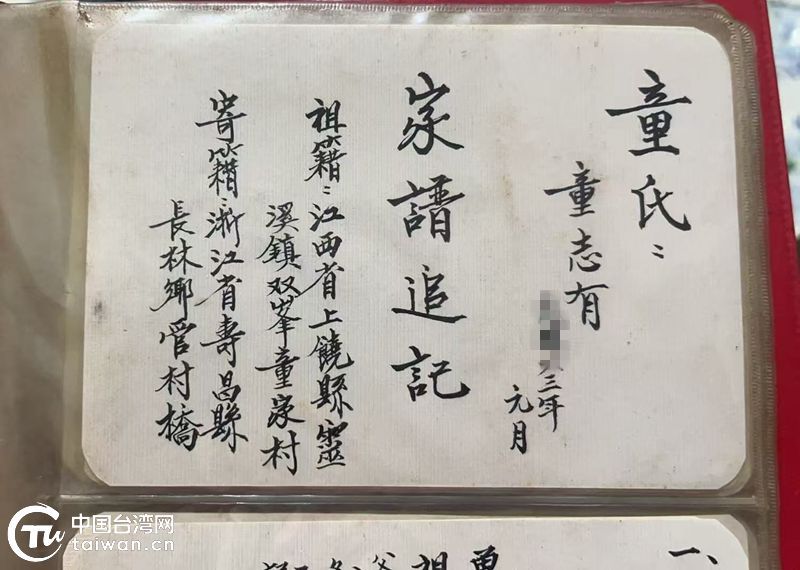 童氏：
童志有
六三年
元月
家譜追記
祖籍：江西省上饒縣靈
溪鎮双峯童家村
寄籍：浙江省壽昌縣
長林鄉管村橋
一、
曾
祖
父
中国台湾网
taiwan.cn